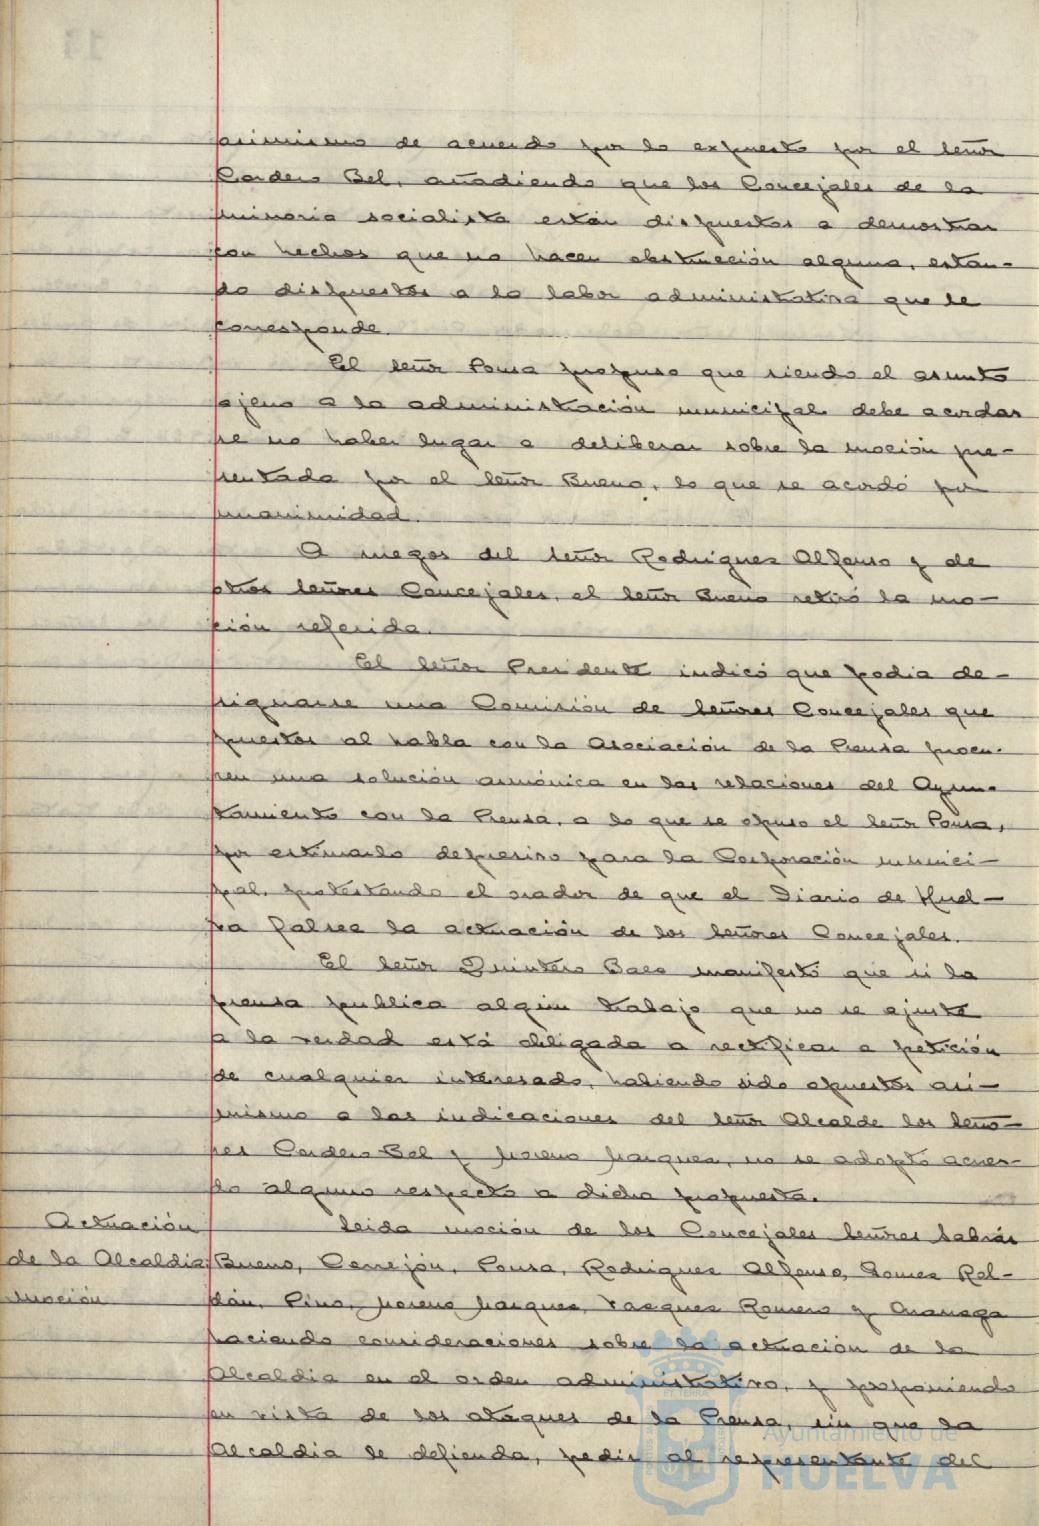 asimismo de acuerdo por lo expuesto por el señor
Cordero Bel, añadiendo que los Concejales de la
minoria socialista están dispuestos a demostrar
con hechos que no hacen obstrucción alguna, estan-
do dispuestos a la labor administrativa que le
corresponde.
El señor Ponsa propuso que siendo el asunto
ajeno a la administración municipal debe acordar
se no haber lugar a deliberar sobre la moción pre-
sentada por el señor Bueno, lo que se acordó por
unanimidad.
A ruegos del señor Rodriguez Alfonso y de
otros señores Concejales, el señor Bueno retiró la mo-
ción referida.
El señor Presidente indicó que podia de-
signarse una Comisión de señores Concejales que
puestos al habla con la Asociación de la Prensa procu-
ren una solución armónica en las relaciones del Ayun-
tamiento con la Prensa, a lo que se opuso el señor Ponsa,
por estimarlo depresivo para la Corporación munici-
pal, protestando el orador de que el Diario de Huel-
va falsee la actuación de los señores Concejales.
El señor Quintero Baez manifestó que si la
prensa publica algún trabajo que no se ajuste
a la verdad está obligada a rectificar a petición
de cualquier interesado, habiendo sido opuestos asi-
mismo a las indicaciones del señor Alcalde los seño-
res Cordero Bel y Moreno Marquez, no se adoptó acuer-
do alguno respecto a dicha propuesta.
Actuación
de la Alcaldia
moción
Leida moción de los Concejales señores Sabrás
Bueno, Terrejón, Ponsa, Rodriguez Alfonso, Gomez Rol-
dán, Pino, Moreno Marquez, Vazquez Romero y
haciendo consideraciones sobre la actuación de la
Alcaldia en el orden administrativo, y proponiendo
en vista de los ataques de la Prensa, sin que la
Alcaldia le defienda, pedir al representante del
Ayuntamiento de
HUELVA